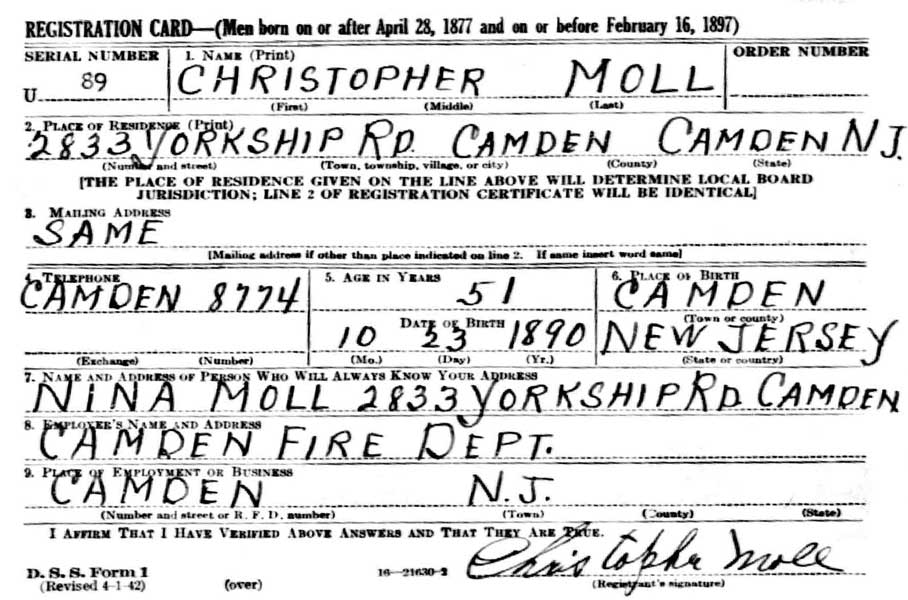 REGISTRATION CARD—(Men born on or after April 28, 1877 and on or before February 16, 1897)
SERIAL NUMBER 1. NAME (Print) ORDER NUMBER
U 89 CHRISTOPHER MOLL
(First) (Middle) (Last)
2. PLACE OF RESIDENCE (Print)
2833 YORKSHIP RD. CAMDEN CAMDEN N.J.
(Number and street) (Town, township, village, or city) (County) (State)
[THE PLACE OF RESIDENCE GIVEN ON THE LINE ABOVE WILL DETERMINE LOCAL BOARD
JURISDICTION; LINE 2 OF REGISTRATION CERTIFICATE WILL BE IDENTICAL]
3. MAILING ADDRESS
SAME
[Mailing address if other than place indicated on line 2. If same insert word same]
4. TELEPHONE 5. AGE IN YEARS 6. PLACE OF BIRTH
CAMDEN 8774 51 CAMDEN
DATE OF BIRTH (Town or county)
10 23 1890 NEW JERSEY
(Exchange) (Number) (Mo.) (Day) (Yr.) (State or country)
7. NAME AND ADDRESS OF PERSON WHO WILL ALWAYS KNOW YOUR ADDRESS
NINA MOLL 2833 YORKSHIP RD. CAMDEN
8. EMPLOYER'S NAME AND ADDRESS
CAMDEN FIRE DEPT.
9. PLACE OF EMPLOYMENT OR BUSINESS
CAMDEN N.J.
(Number and street or R. F. D. number) (Town) (County) (State)
I AFFIRM THAT I HAVE VERIFIED ABOVE ANSWERS AND THAT THEY ARE TRUE.
Christopher Moll
D. S. S. Form 1
(Revised 4-1-42) (over) 16—21630-2 (Registrant's signature)